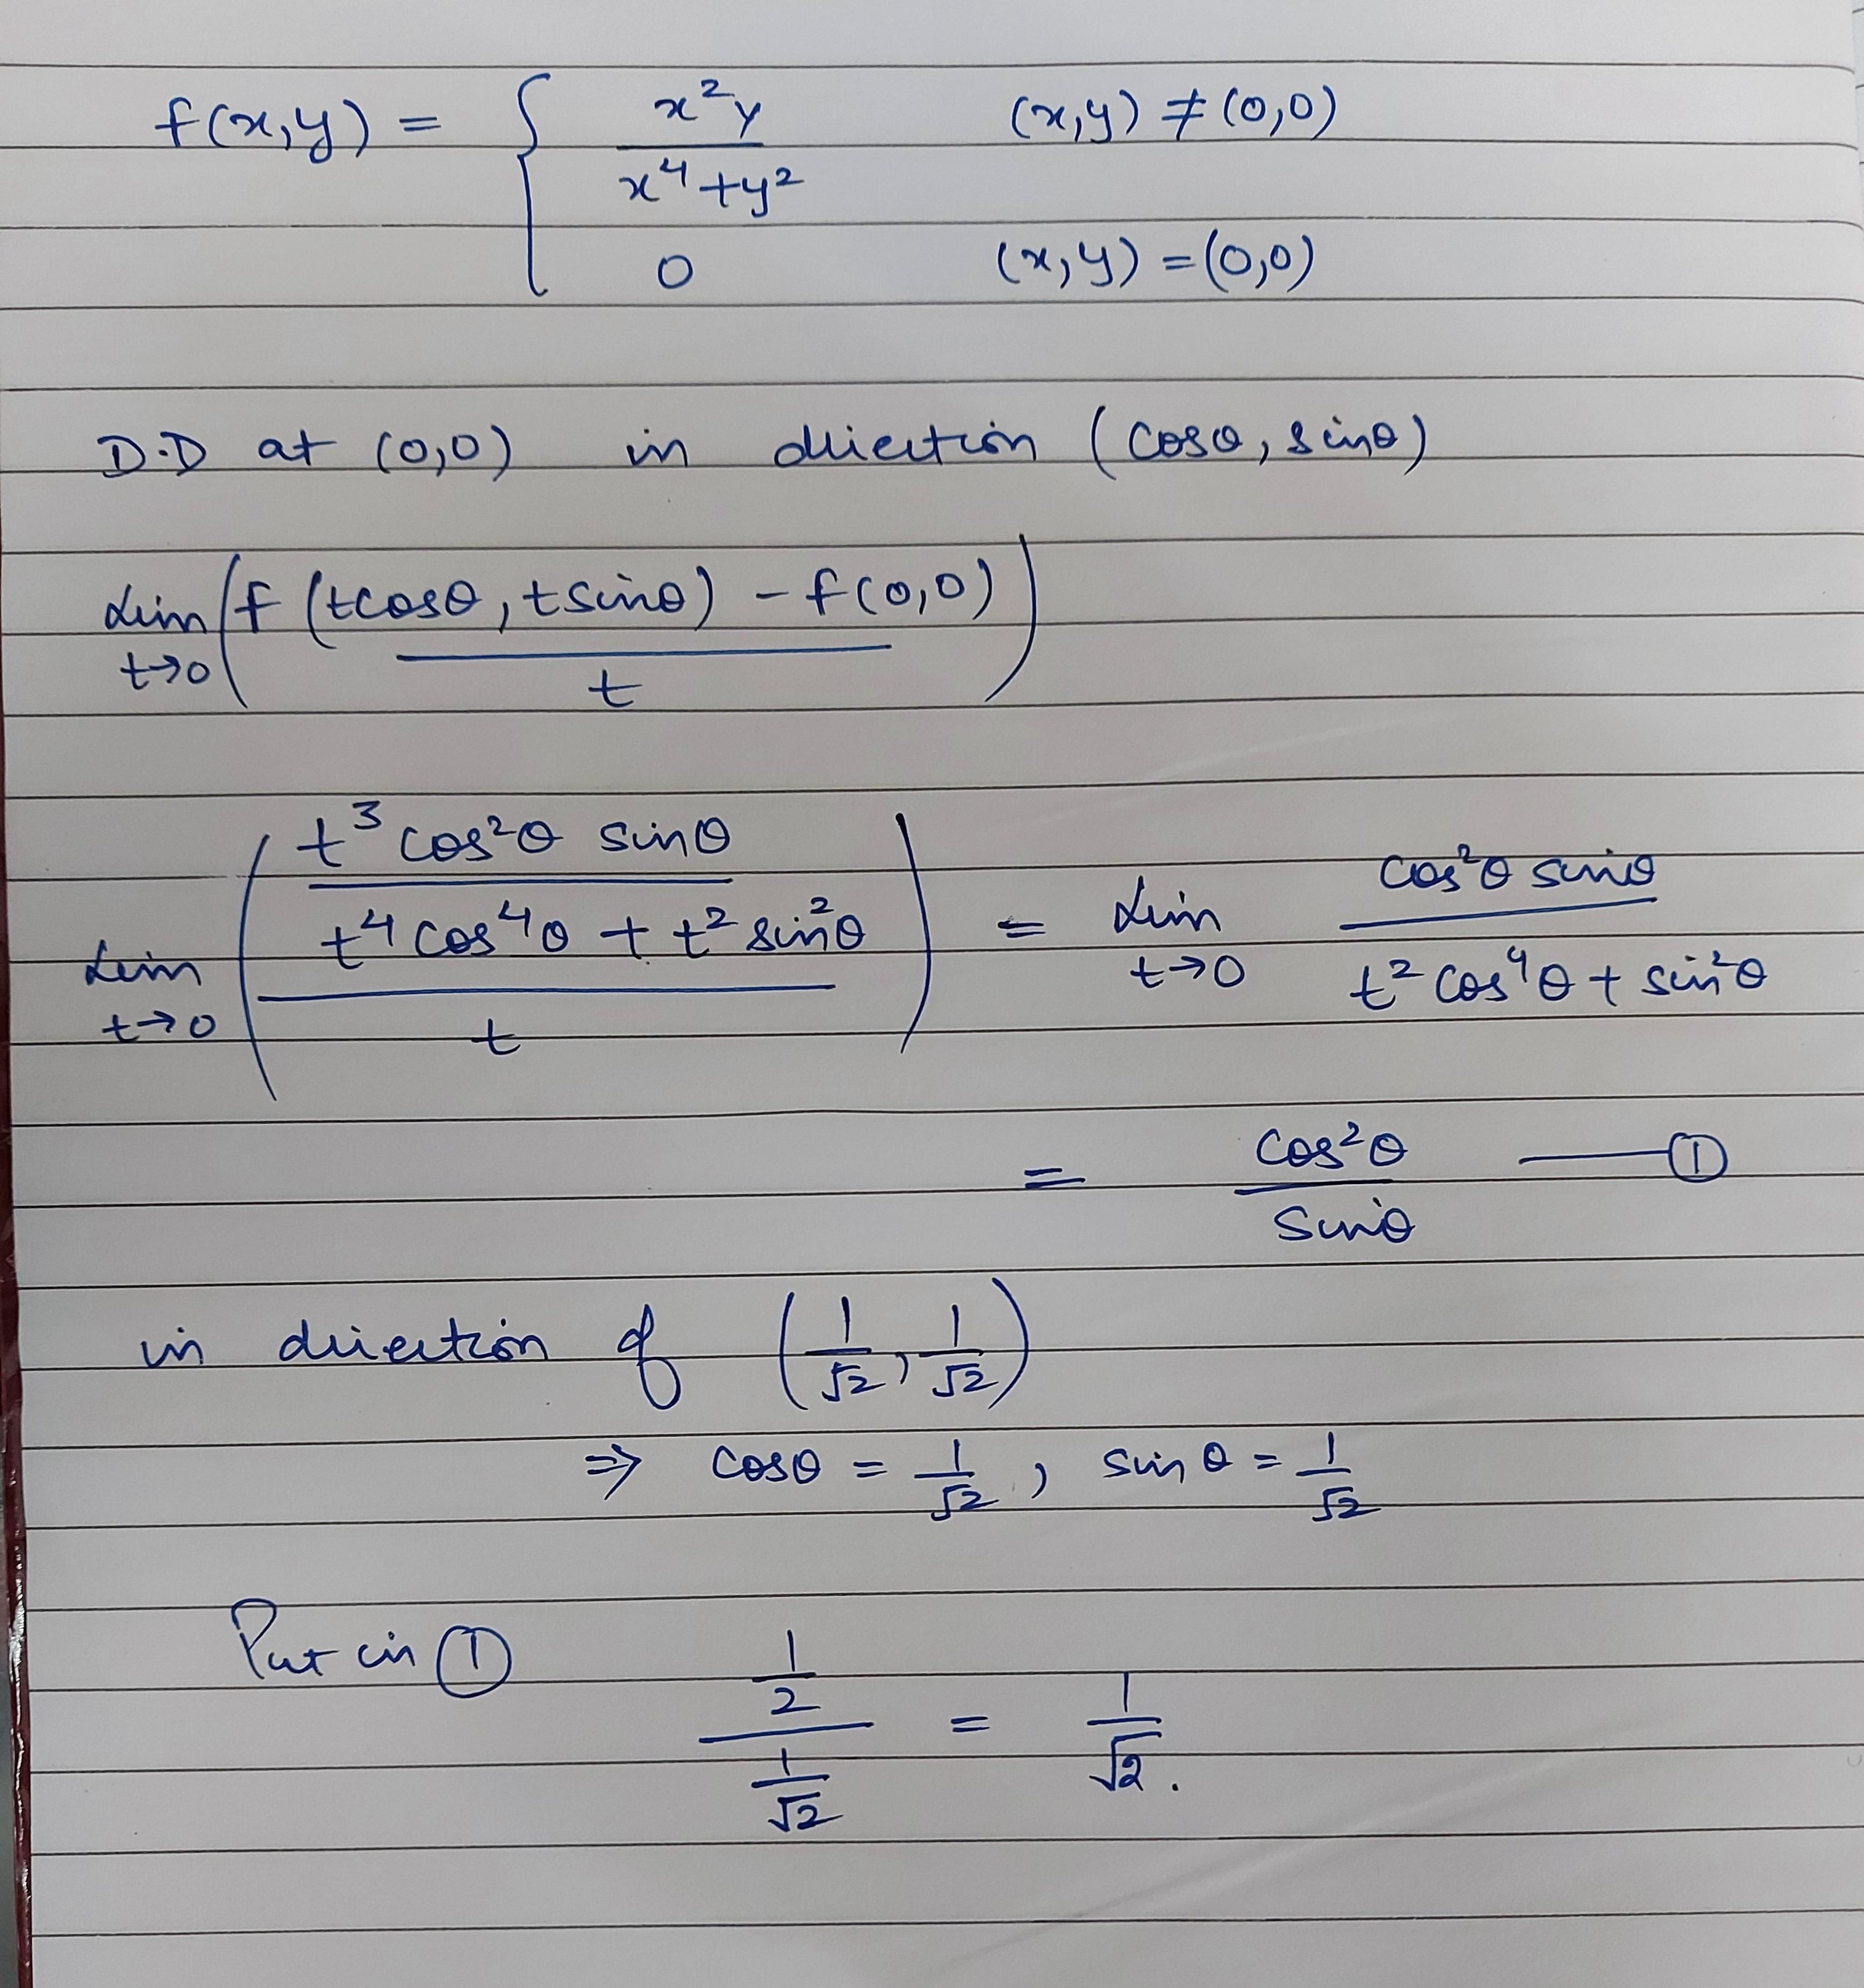 f(x,y) = { x²y / x⁴+y² (x,y) ≠ (0,0)
0 (x,y) = (0,0)
D.D at (0,0) in direction (cosθ, sinθ)
Lim t→0 ( f (tcosθ, tsinθ) - f(0,0) / t )
Lim t→0 ( t³ cos²θ sinθ / t⁴ cos⁴θ + t² sin²θ / t ) = Lim t→0 cos²θ sinθ / t² cos⁴θ + sin²θ
= cos²θ / sinθ —— ①
in direction of (1/√2, 1/√2)
⇒ cosθ = 1/√2, sinθ = 1/√2
Put in ① 1/2 / 1/√2 = 1/√2.